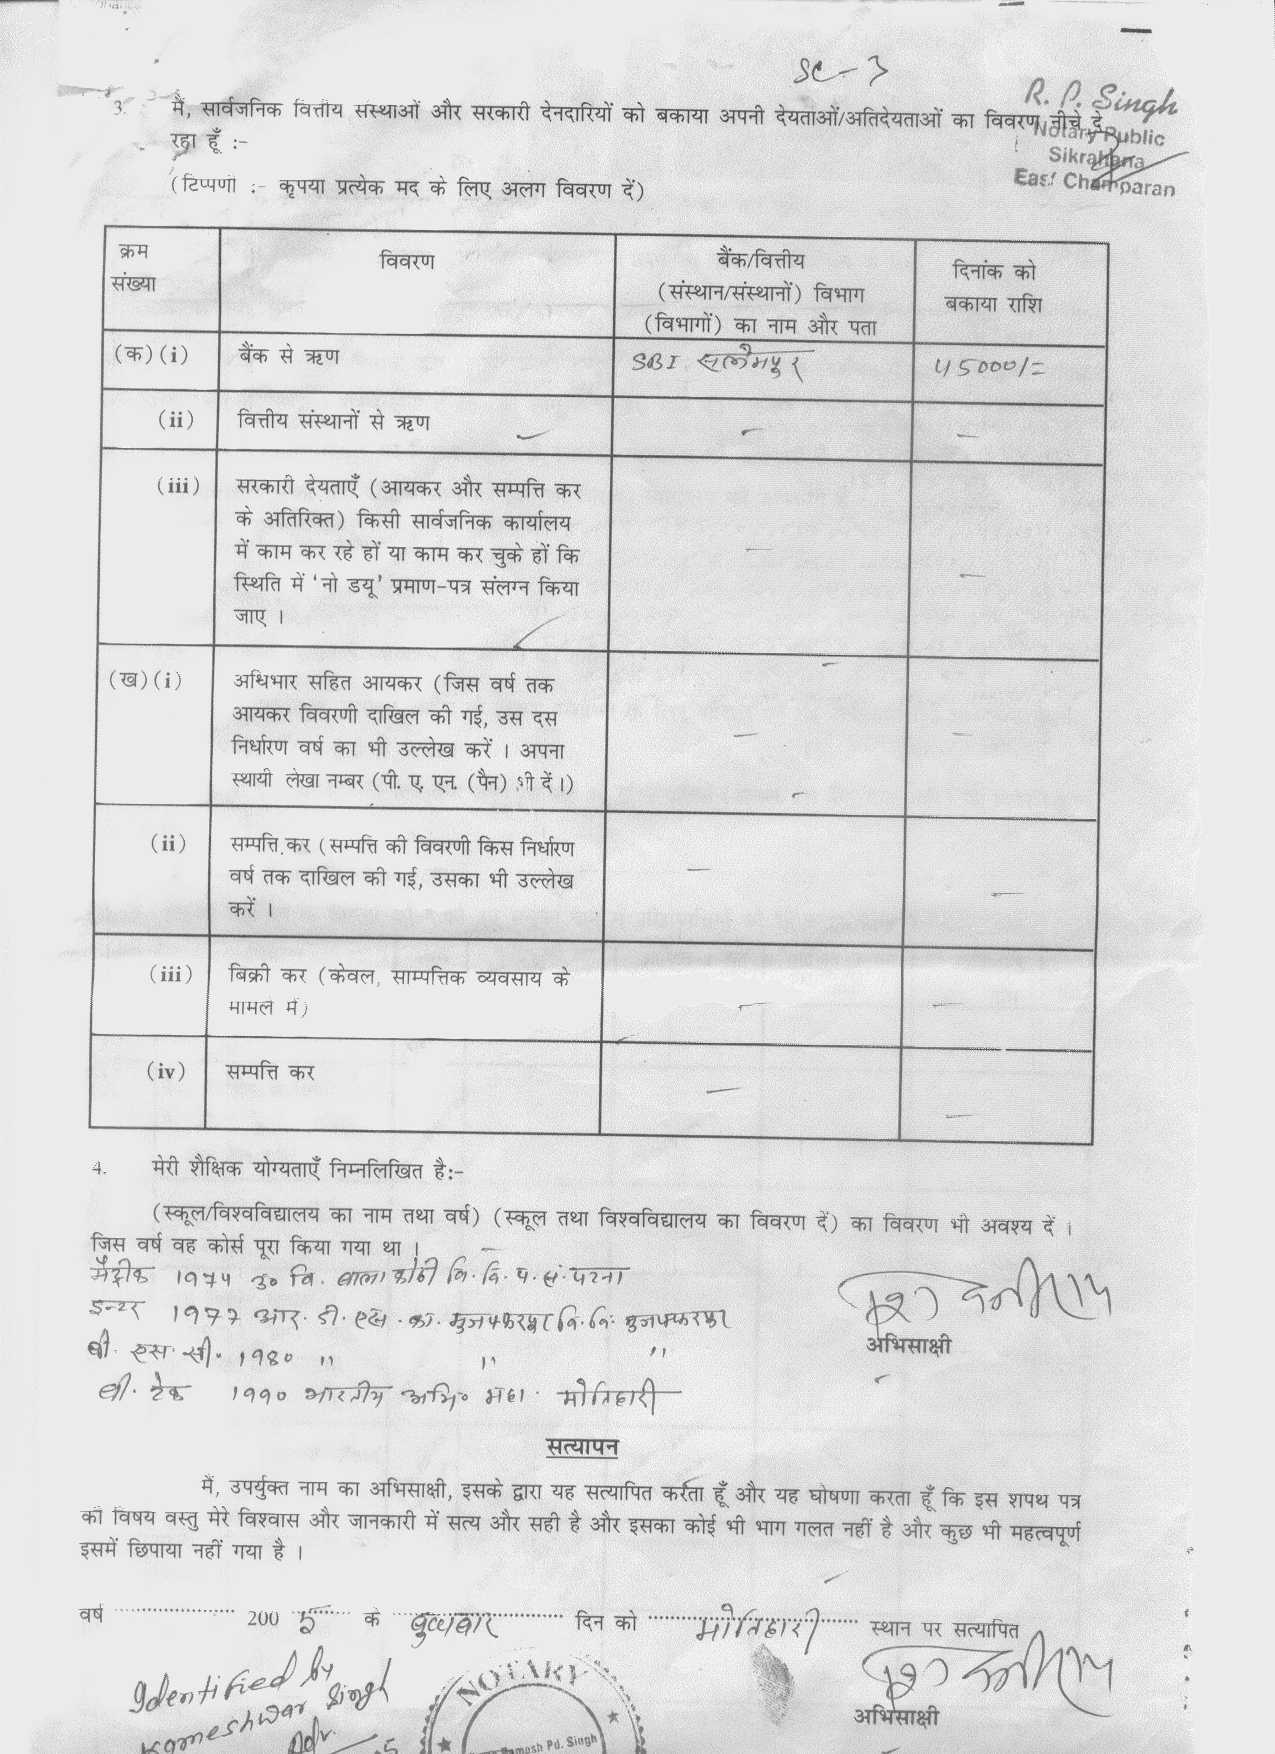 SC-3
R. P. Singh
Notary Public
Sikrahana
East Champaran
3. मैं, सार्वजनिक वित्तीय संस्थाओं और सरकारी देनदारियों को बकाया अपनी देयताओं/अतिदेयताओं का विवरण नीचे दे
रहा हूँ :-
(टिप्पणी :- कृपया प्रत्येक मद के लिए अलग विवरण दें)
क्रम संख्या
विवरण
बैंक/वित्तीय
(संस्थान/संस्थानों) विभाग
(विभागों) का नाम और पता
दिनांक को
बकाया राशि
(क) (i) बैंक से ऋण SBI सलेमपुर 45000/=
(ii) वित्तीय संस्थानों से ऋण - -
(iii) सरकारी देयताएँ (आयकर और सम्पत्ति कर
के अतिरिक्त) किसी सार्वजनिक कार्यालय
में काम कर रहे हों या काम कर चुके हों कि
स्थिति में 'नो डयू' प्रमाण-पत्र संलग्न किया
जाए ।
(ख) (i) अधिभार सहित आयकर (जिस वर्ष तक
आयकर विवरणी दाखिल की गई, उस दस
निर्धारण वर्ष का भी उल्लेख करें । अपना
स्थायी लेखा नम्बर (पी. ए. एन. (पैन) भी दें ।)
(ii) सम्पत्ति कर (सम्पत्ति की विवरणी किस निर्धारण
वर्ष तक दाखिल की गई, उसका भी उल्लेख
करें ।
(iii) बिक्री कर (केवल, साम्पत्तिक व्यवसाय के
मामले में)
(iv) सम्पत्ति कर
4. मेरी शैक्षिक योग्यताएँ निम्नलिखित है:-
(स्कूल/विश्वविद्यालय का नाम तथा वर्ष) (स्कूल तथा विश्वविद्यालय का विवरण दें) का विवरण भी अवश्य दें ।
जिस वर्ष वह कोर्स पूरा किया गया था ।
मैट्रीक १९७५ उ० वि. वाला कोठी वि. वि. प. स. पटना
इन्टर १९७७ आर. डी. एस. का. मुजफ्फरपुर वि. वि. मुजफ्फरपुर
बी. एस. सी. १९८० " " "
बी. टेक १९९० भारतीय अभि० महा. मोतिहारी
अभिसाक्षी
सत्यापन
मैं, उपर्युक्त नाम का अभिसाक्षी, इसके द्वारा यह सत्यापित करता हूँ और यह घोषणा करता हूँ कि इस शपथ पत्र
की विषय वस्तु मेरे विश्वास और जानकारी में सत्य और सही है और इसका कोई भी भाग गलत नहीं है और कुछ भी महत्वपूर्ण
इसमें छिपाया नहीं गया है ।
वर्ष 200 5 के बुधवार दिन को मोतिहारी स्थान पर सत्यापित
Identified by
Kameshwar Singh
Adv.
NOTARY
Ramesh Pd. Singh
अभिसाक्षी